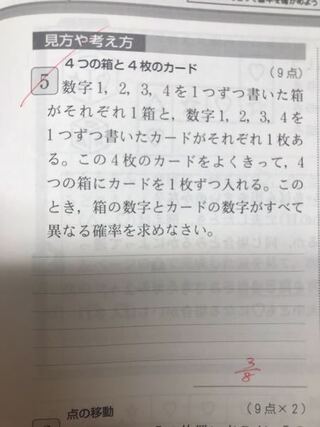 見方や考え方
4つの箱と4枚のカード (9点)
5 数字1, 2, 3, 4を1つずつ書いた箱
がそれぞれ1箱と, 数字1, 2, 3, 4を
1つずつ書いたカードがそれぞれ1枚あ
る。この4枚のカードをよくきって, 4
つの箱にカードを1枚ずつ入れる。この
とき, 箱の数字とカードの数字がすべて
異なる確率を求めなさい。
3/8
点の移動 (9点×2)